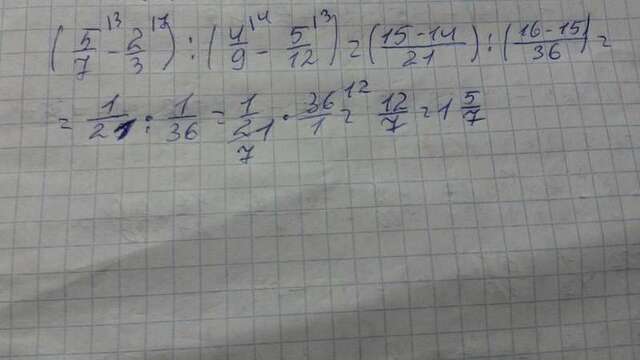 (5/7 ^|3 - 2/3 ^|7) : (4/9 ^|4 - 5/12 ^|3) = (15-14/21) : (16-15/36) =
= 1/21 : 1/36 = 1/21 7 · 36/1 12 = 12/7 = 1 5/7